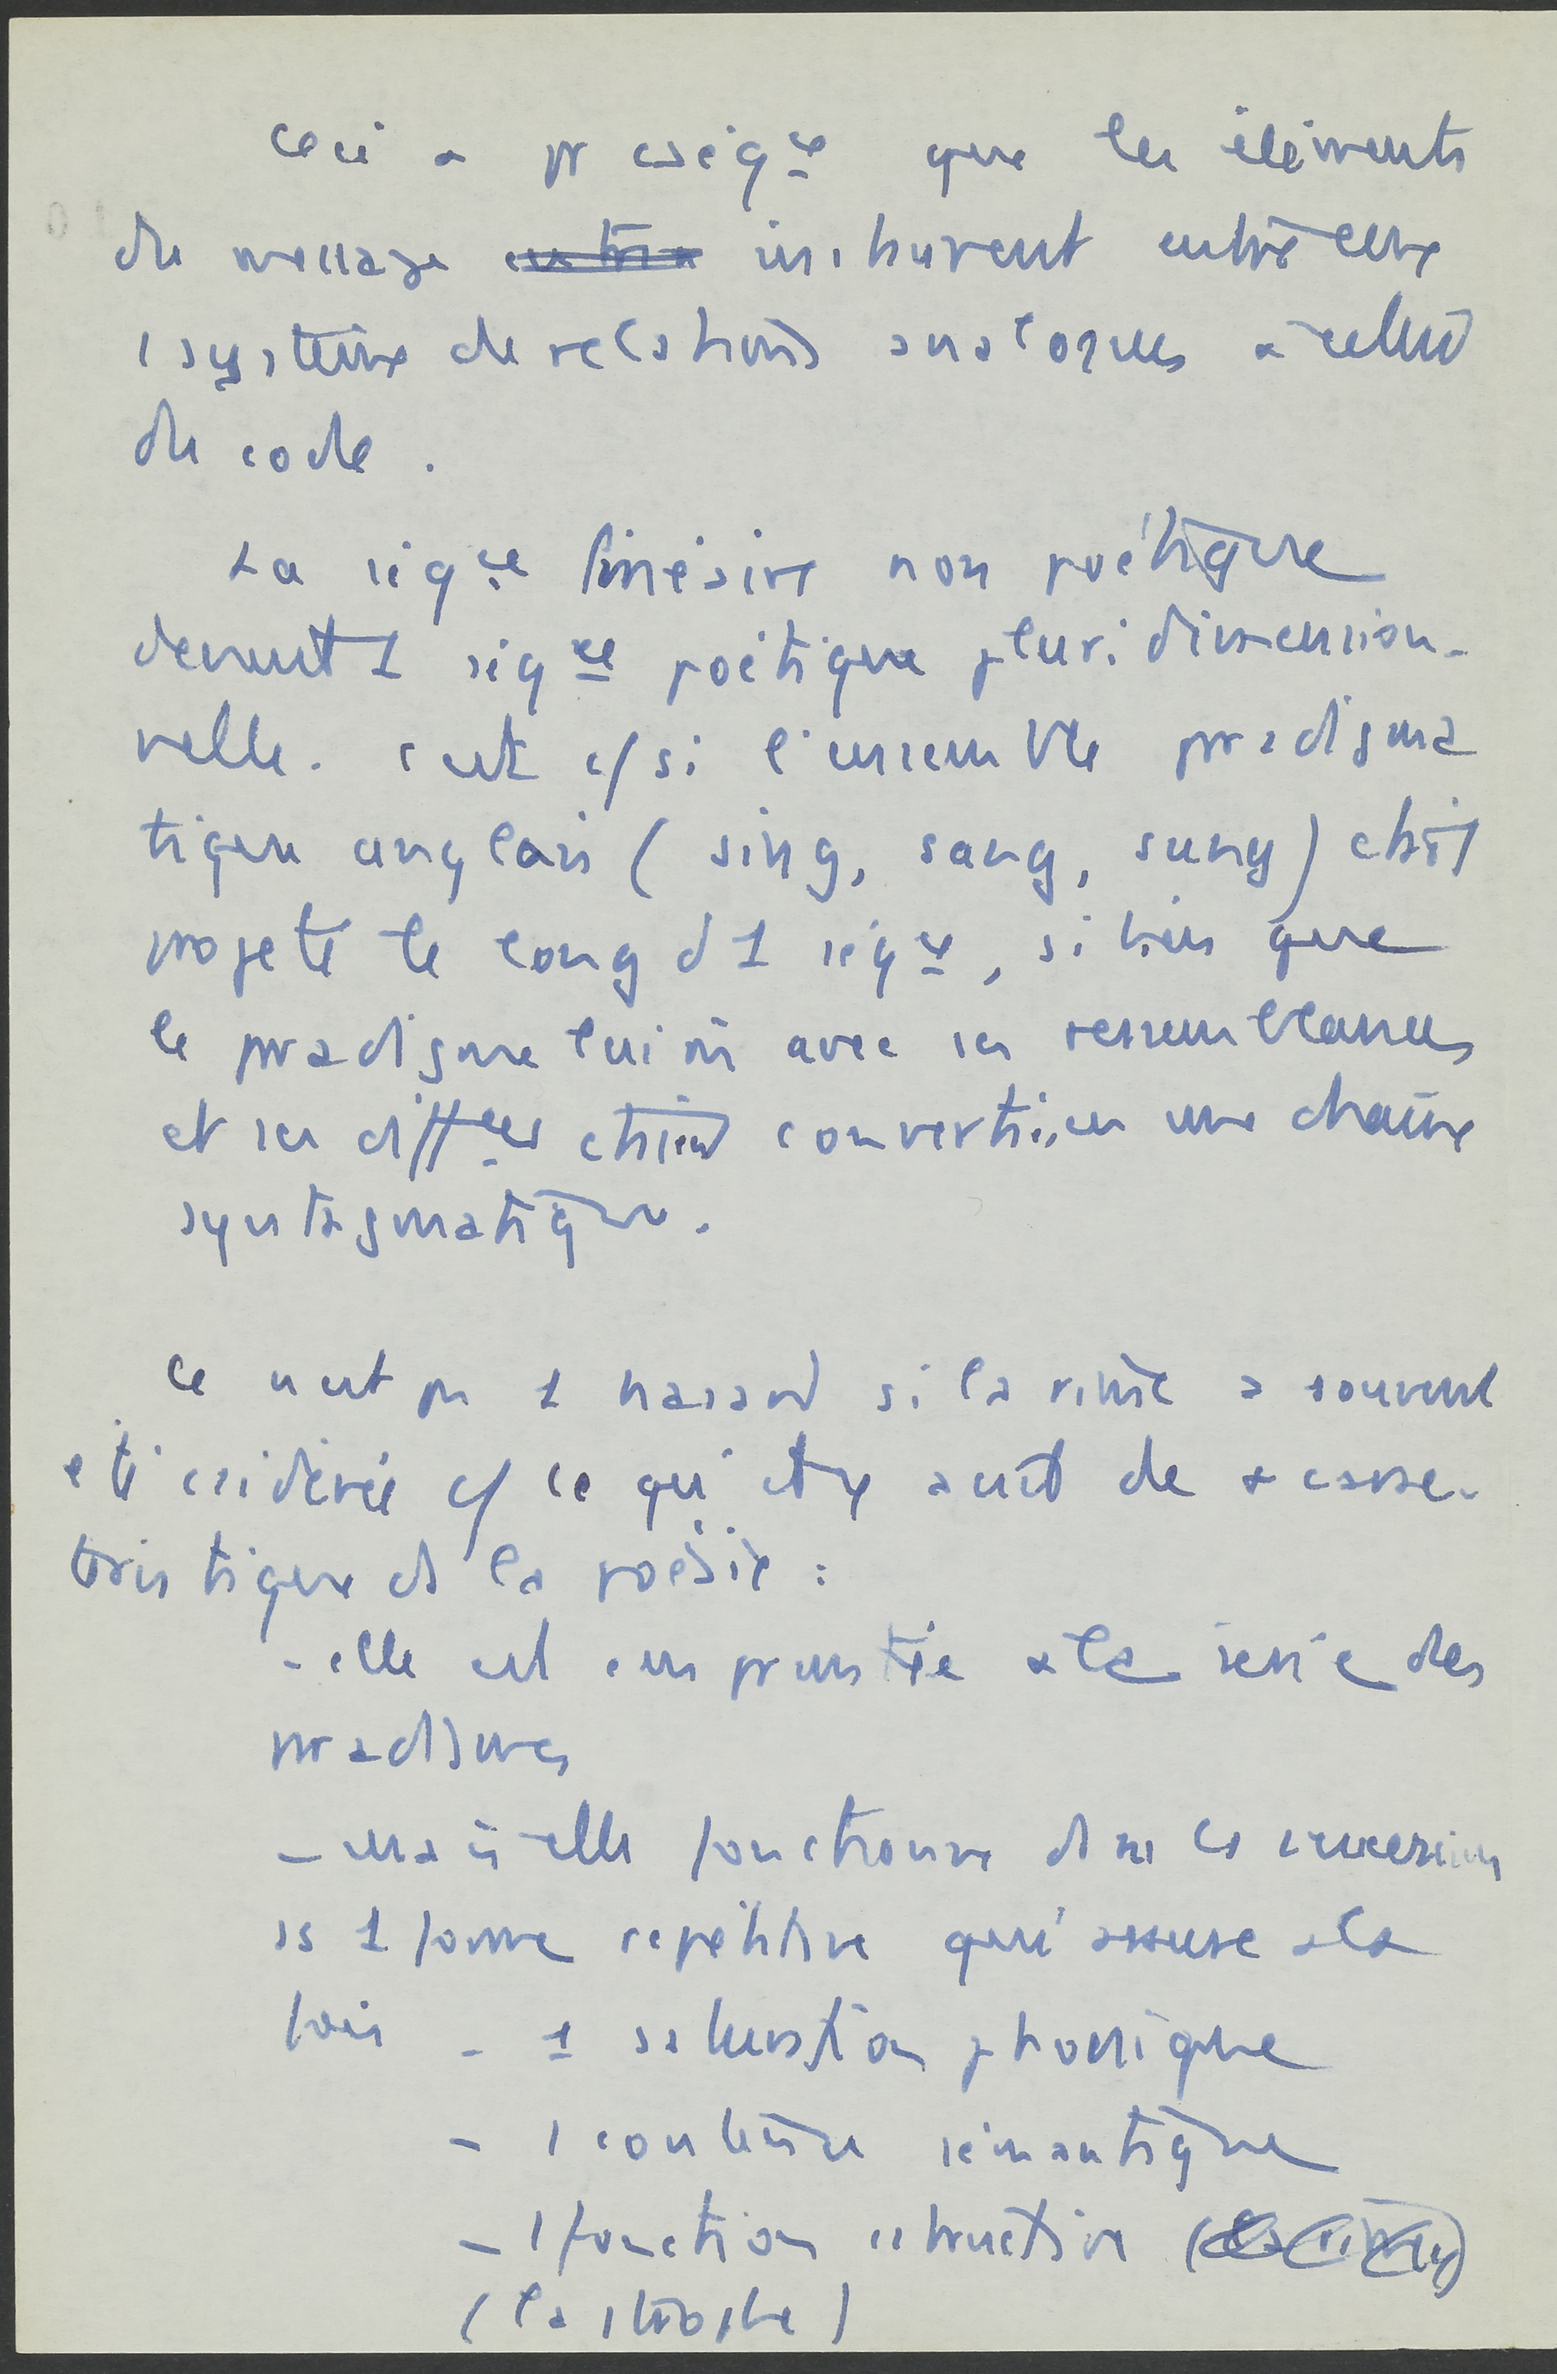 Ceci a pr cséqce que les éléments
du message entre instaurent entre eux
1 système de relations analogues à celui
du code.
La séqce linéaire non poétique
devient 1 séqce poétique pluridimension-
nelle. c'est c/ si l'ensemble pradigma
tique anglais (sing, sang, sung) était
projeté le long d 1 séqce, si bien que
le pradigme lui m̂ avec ses ressemblances
et ses diffces était converti en une chaîne
syntagmatique.
Ce n'est pas 1 hasard si la rime a souvent
été csidérée c/ ce qu'il y avait de + carac-
téristique ds la poésie :
- elle est empruntée à la série des
pradigmes
- mais elle fonctionne dans la succession
ss 1 forme répétitive qui assure à la
fois - 1 saturation phonique
- 1 contenu sémantique
- 1 fonction cstructive (la rime)
(la strophe)